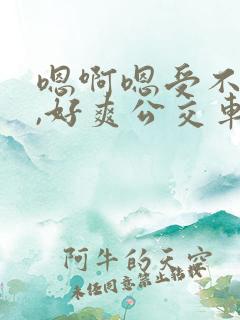 嗯啊嗯受不
,好爽公交车
阿牛的天空
未经同意禁止转载